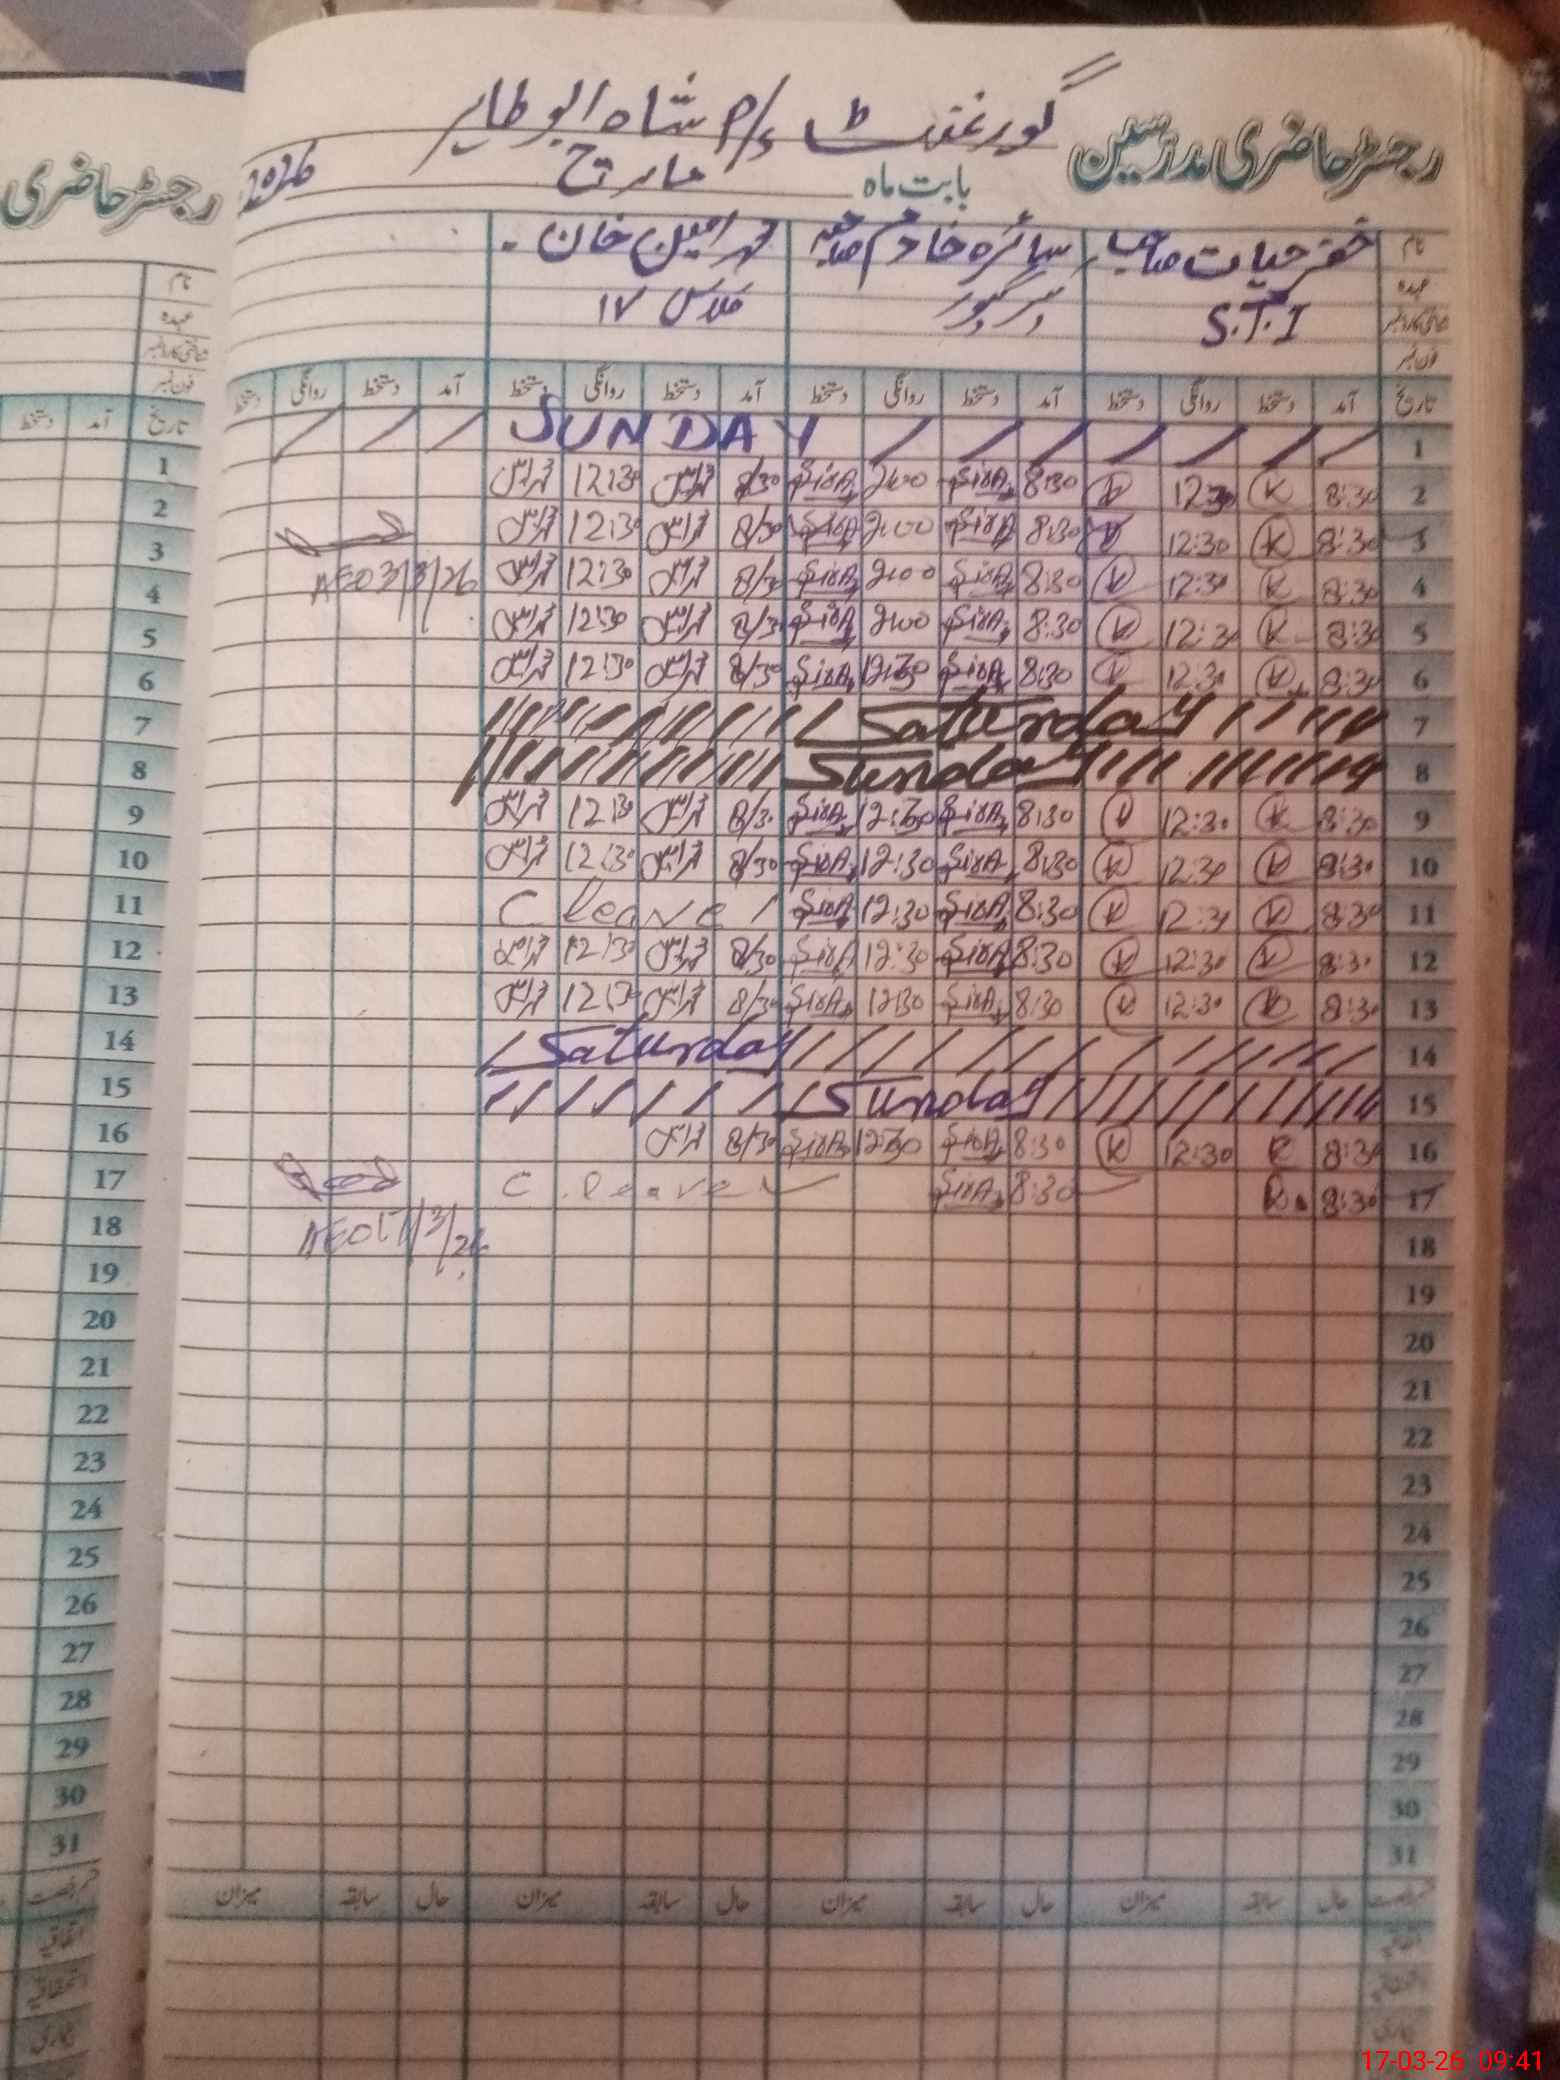 رجسٹر حاضری مدرسین گورنمنٹ P/s شاہ ابو طاہر
بابت ماہ مارچ 2026
نام خضر حیات صاحب سائرہ خادم صاحبہ محمد امین خان
عہدہ
S.T.I ورسرگیور کلاس ۱۷
فون نمبر
تاریخ آمد دستخط روانگی دستخط آمد دستخط روانگی دستخط آمد دستخط روانگی دستخط آمد دستخط روانگی دستخط
1 SUNDAY
2 8:30 K 12:30 K 8:30 SirA 2:00 SirA 8/30 12:30
3 8:30 K 12:30 K 8:30 SirA 2:00 SirA 8/30 12:30
AEO 3/3/26
4 8:30 K 12:30 K 8:30 SirA 2:00 SirA 8/30 12:30
5 8:30 K 12:30 K 8:30 SirA 2:00 SirA 8/30 12:30
6 8:30 K 12:30 K 8:30 SirA 12:30 SirA 8/30 12:30
7 Saturday
8 Sunday
9 8:30 K 12:30 K 8:30 SirA 12:30 SirA 8/30 12:30
10 8:30 K 12:30 K 8:30 SirA 12:30 SirA 8/30 12:30
11 8:30 K 12:30 K 8:30 SirA 12:30 SirA C leave
12 8:30 K 12:30 K 8:30 SirA 12:30 SirA 8/30 12:30
13 8:30 K 12:30 K 8:30 SirA 12:30 SirA 8/30 12:30
14 Saturday
15 Sunday
16 8:30 K 12:30 K 8:30 SirA 12:30 SirA 8/30
17 8:30 K 8:30 SirA C.leave
AEO 17/3/26
18
19
20
21
22
23
24
25
26
27
28
29
30
31
حال سابقہ میزان حال سابقہ میزان حال سابقہ میزان حال سابقہ میزان
اتفاقیہ
استحقاقیہ
بیماری
رجسٹر حاضری
نام
عہدہ
فون نمبر
تاریخ آمد دستخط
1
2
3
4
5
6
7
8
9
10
11
12
13
14
15
16
17
18
19
20
21
22
23
24
25
26
27
28
29
30
31
اتفاقیہ
استحقاقیہ
بیماری
17-03-26 09:41